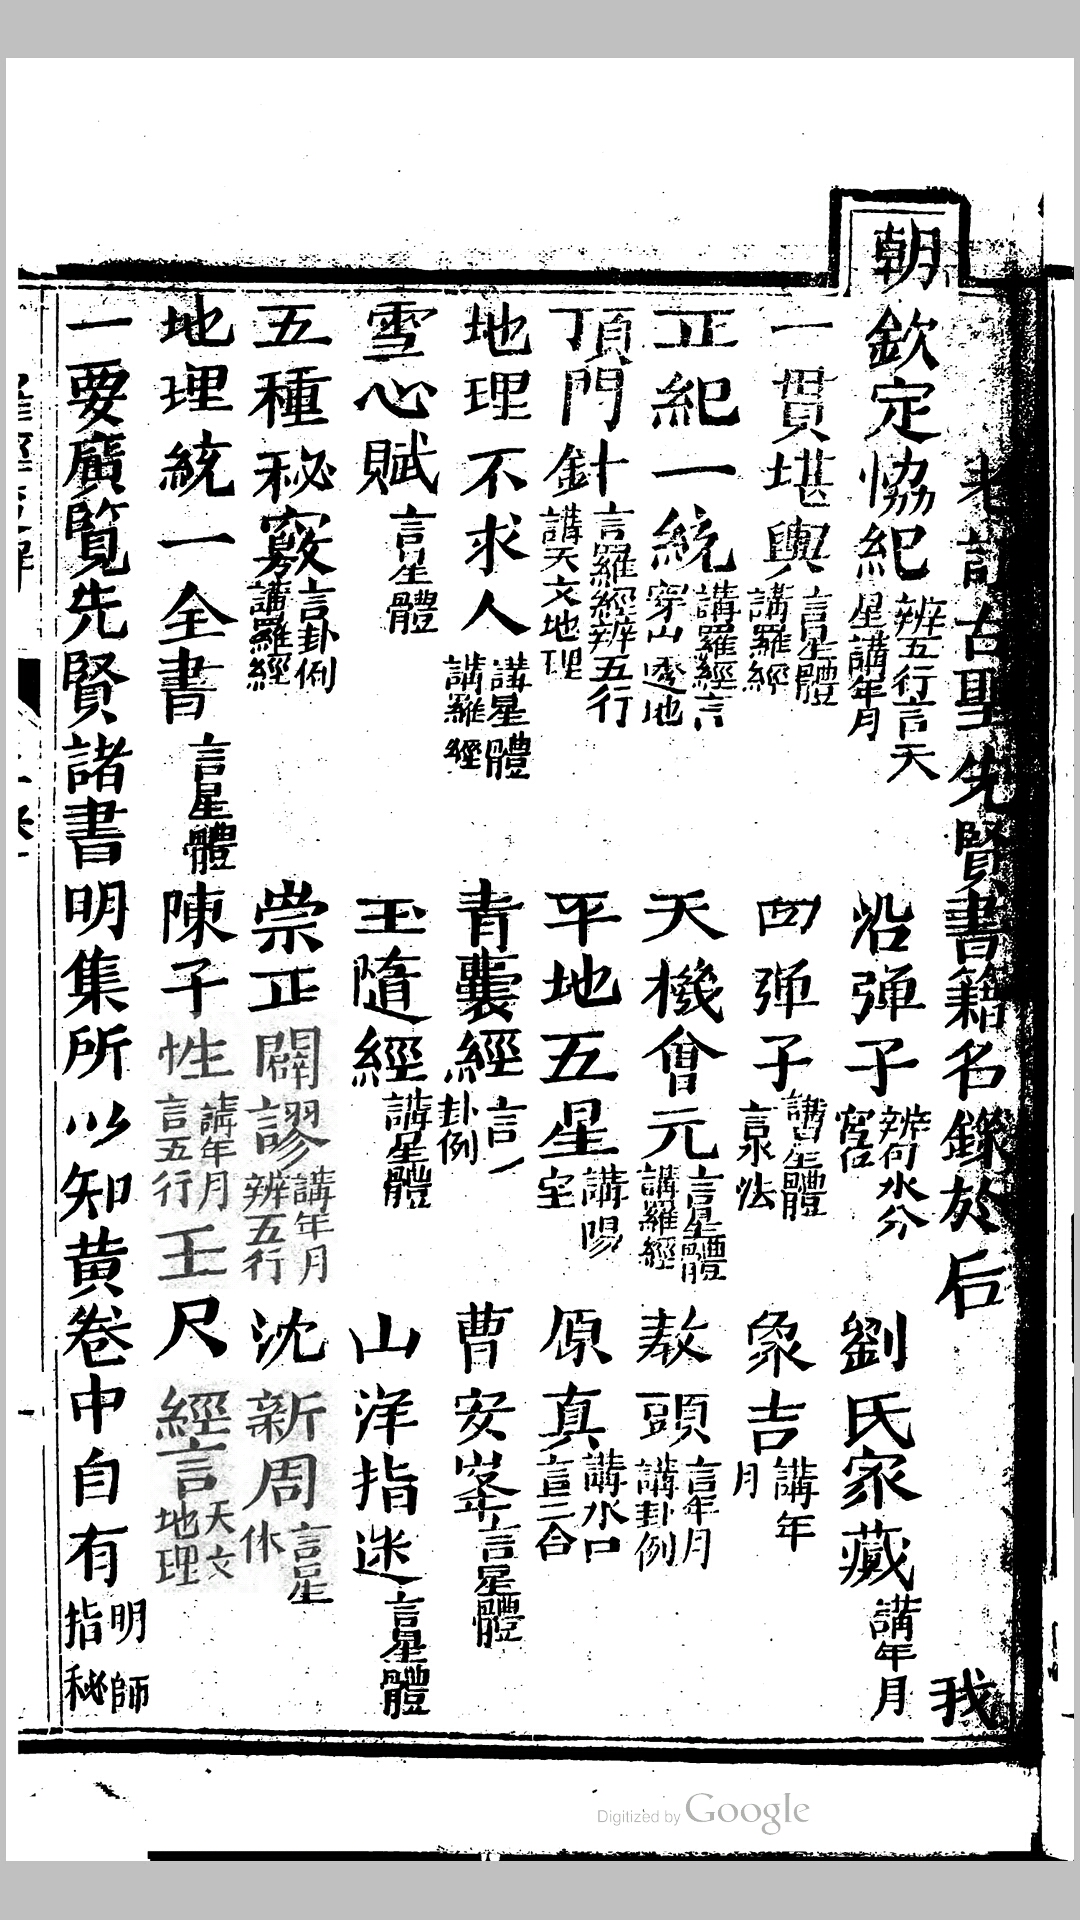 考訂古聖先賢書籍名錄於后 我
朝欽定協紀 辨五行言天 星講年月 沿彈子 辨向水分 宮位 劉氏家藏 講年月
一貫堪輿 言星體 講羅經 四彈子 講星體 言泉法 象吉 講年 月
正紀一統 講羅經言 穿山透地 天機會元 言星體 講羅經 敖頭 言年月 講卦例
頂門針 言羅經辨五行 講天文地理 平地五星 講陽 宅 原真 講水口 言三合
地理不求人 講星體 講羅經 青囊經 言 卦例 曹安峯 言星體
雪心賦 言星體 玉隨經 講星體 山洋指迷 言星體
五種秘竅 言卦例 講羅經 崇正闢謬 講年月 辨五行 沈新周 言星 休
地理統一全書 言星體 陳子性 講年月 言五行 玉尺經 言天文 地理
一要廣覽先賢諸書明集所以知黃卷中自有 明師 指秘
Digitized by Google